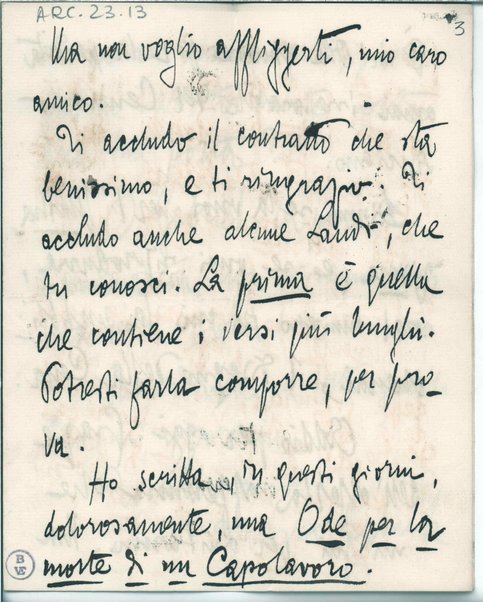 ARC. 23. 13
3
Ma non voglio affliggerti, mio caro
amico.
Ti accludo il contratto che sta
benissimo, e ti ringrazio. Ti
accludo anche alcune Laudi, che
tu conosci. La prima è quella
che contiene i versi più lunghi.
Potresti farla comporre, per pro-
va.
Ho scritta in questi giorni,
dolorosamente, una Ode per la
morte di un Capolavoro.
B
VE